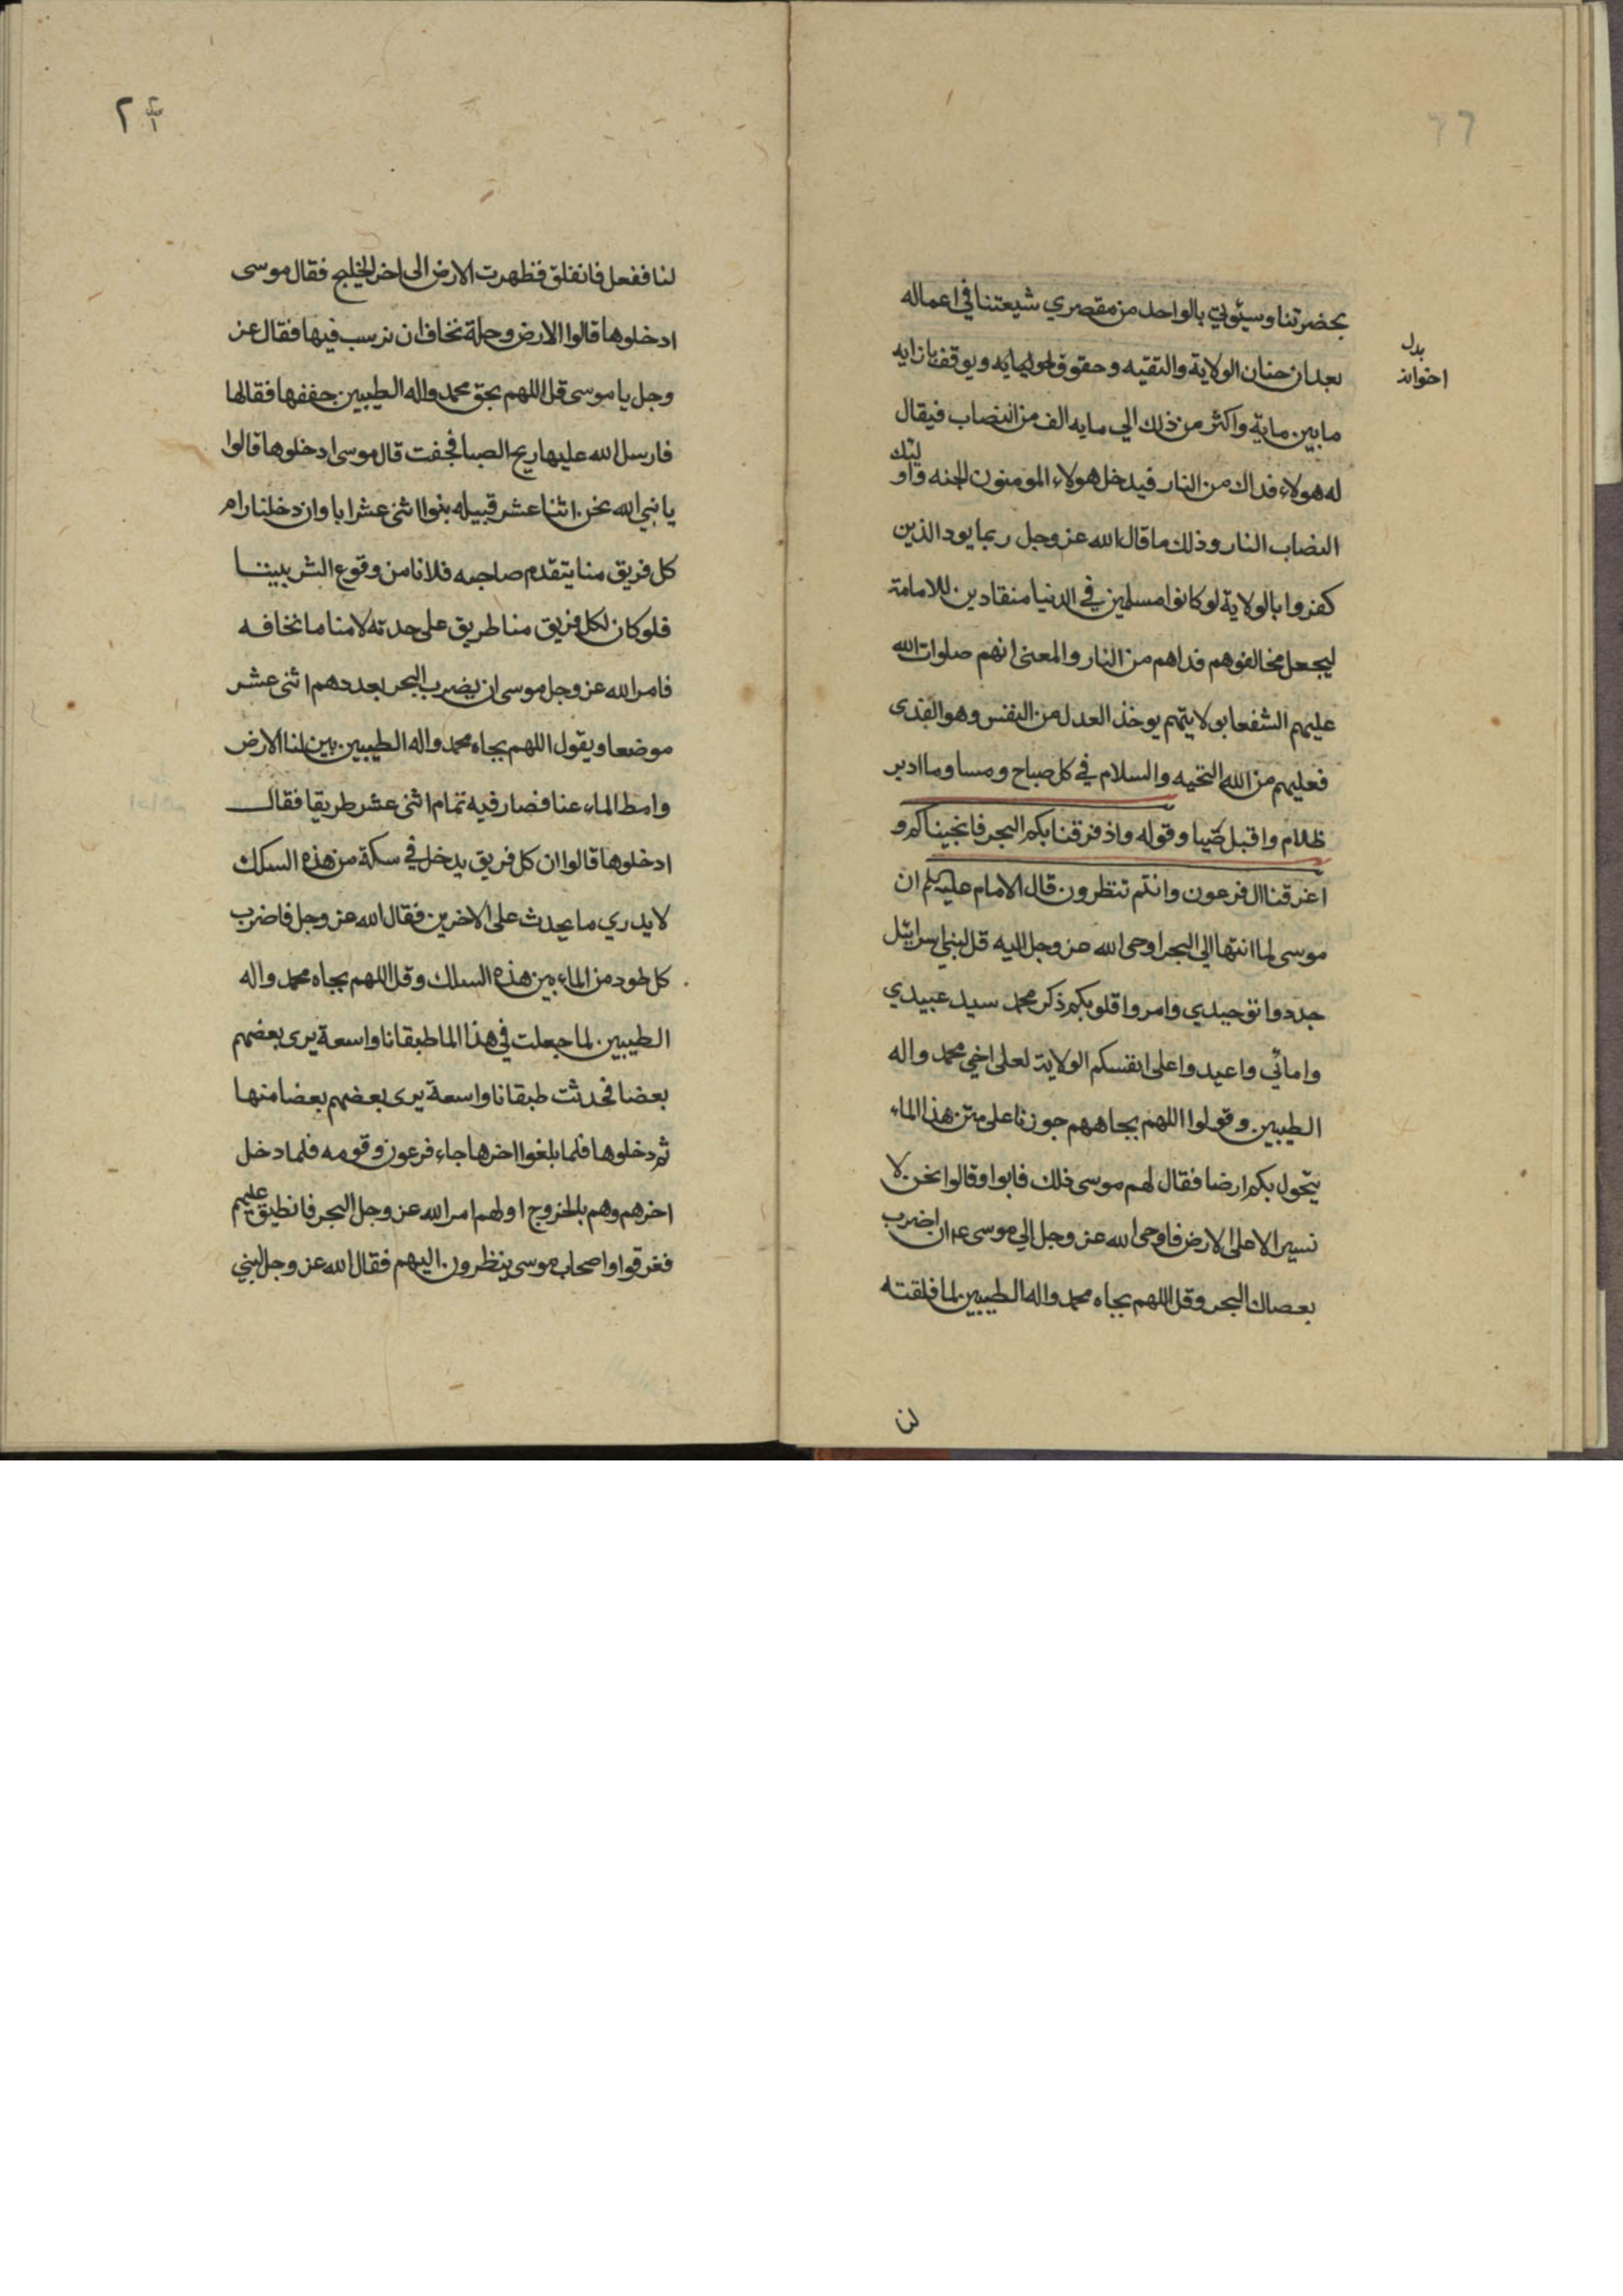 بحضرتنا وسيئوتي بالواحد من مقصري شيعتنا في اعماله
بعد ان حنان الولاية والتقيه وحقوق ويوقف بازايه
ما بين ماية واكثر من ذلك الي مايه الف من النصاب فيقال
له هولاء فداك من النار فيدخل هولاء المومنون الجنه واو
ليك
النصاب النار وذلك ما قال الله عز وجل ربما يود الذين
كفروا بالولاية لو كانوا مسلمين في الدنيا منقادين للامامة
ليجعل مخالفوهم فداهم من النار والمعنى انهم صلوات الله
عليهم الشفعا بولايتهم يوخذ العدل من النفس وهو الفدى
فعليهم من الله التحيه والسلام في كل صباح ومسا وما ادبر
ظلام واقبل ضيا وقوله واذ فرقنا بكم البحر فانجيناكم و
اغرقنا ال فرعون وانتم تنظرون قال الامام عليه ان
موسى لما انتها الي البحر اوحى الله عز وجل اليه قل لبني اسرائيل
جددوا توحيدي وامروا قلوبكم ذكر محمد سيد عبيدي
وامائي واعيدوا على انفسكم الولاية لعلى اخي محمد واله
الطيبين وقولوا اللهم بجاههم جوزنا على متن هذا الماء
يتحول بكم ارضا فقال لهم موسى ذلك فابوا وقالوا نحن لا
نسير الا على الارض فاوحى الله عز وجل الي موسى ان اضرب
بعصاك البحر وقل اللهم بجاه محمد واله الطيبين لما فلقته
بدل
اخوانه
لنا
٢
لنا ففعل فانفلق فظهرت الارض الى اخر الخليج فقال موسى
ادخلوها قالوا الارض وحلة نخاف ان نرسب فيها فقال عز
وجل يا موسى قل اللهم بحق محمد واله الطيبين جففها فقالها
فارسل الله عليها ريح الصبا فجفت قال موسى ادخلوها قالوا
يا نبي الله نحن اثنا عشر قبيله بنوا اثنى عشر ابا وان دخلنا رام
كل فريق منا يتقدم صاحبه فلا نامن وقوع الشر بيننا
فلو كان لكل فريق منا طريق على حدته لامنا ما نخافه
فامر الله عز وجل موسى ان يضرب البحر بعددهم اثنى عشر
موضعا ويقول اللهم بجاه محمد واله الطيبين بين لنا الارض
وامط الماء عنا فصار فيه تمام اثنى عشر طريقا فقال
ادخلوها قالوا ان كل فريق يدخل في سكة من هذه السكك
لا يدري ما يحدث على الاخرين فقال الله عز وجل فاضرب
كل طود من الماء بين هذه السلك وقل اللهم بجاه محمد واله
الطيبين لما جعلت في هذا الما طبقانا واسعة يرى بعضهم
بعضا فحدثت طبقانا واسعة يرى بعضهم بعضا منها
ثم دخلوها فلما بلغوا اخرها جاء فرعون وقومه فلما دخل
اخرهم وهم بالخروج اولهم امر الله عز وجل البحر فانطبق عليهم
فغرقوا واصحاب موسى ينظرون اليهم فقال الله عز وجل لبني